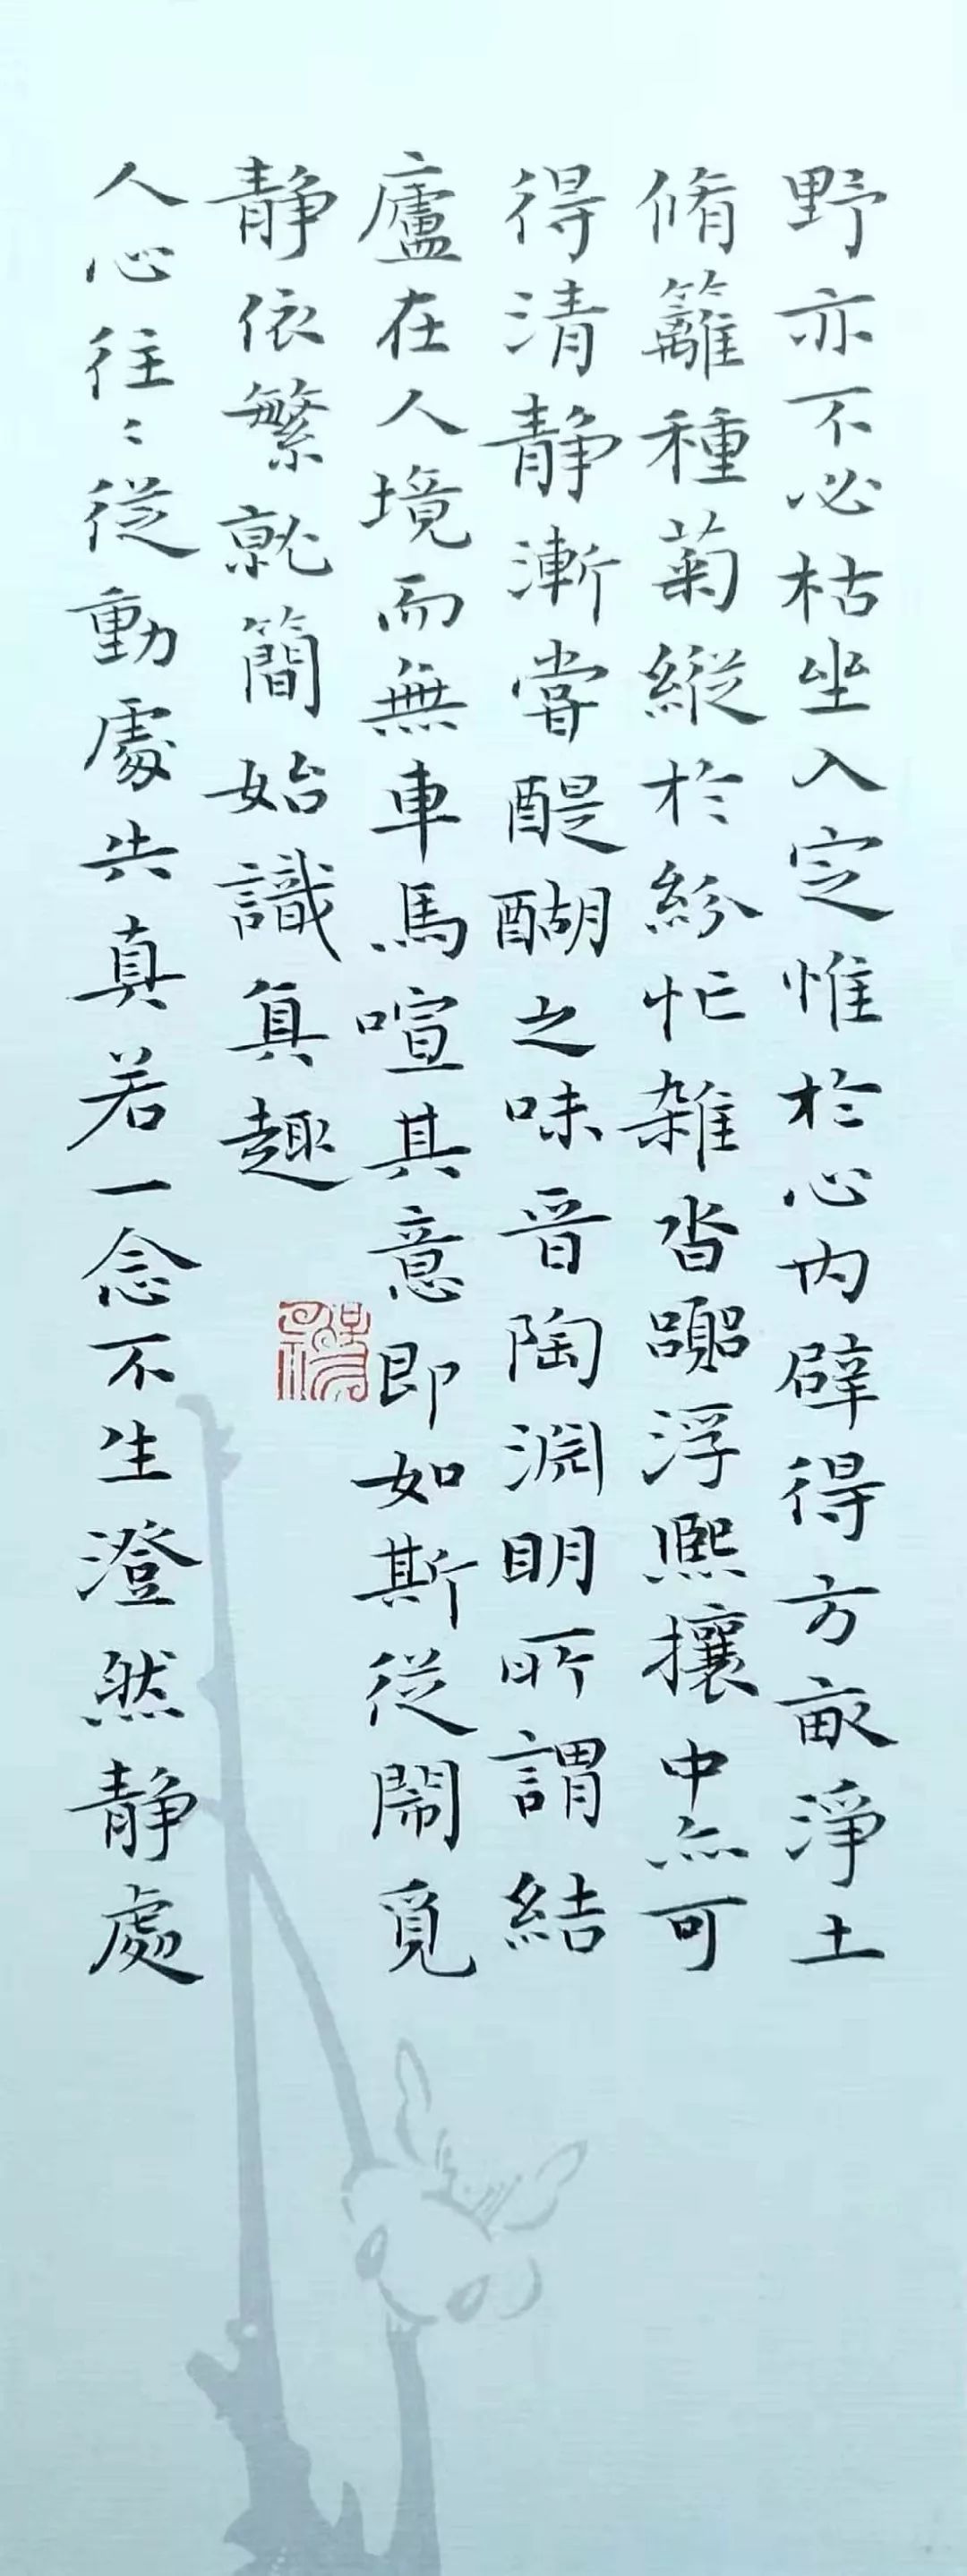 野亦不必枯坐入定惟於心内辟得方畝淨土
脩籬種菊縱於紛忙雜沓躁浮熙攘中亦可
得清静漸嘗醍醐之味晉陶淵明所謂結
廬在人境而無車馬喧其意即如斯從鬧覓
静依繁就簡始識真趣
人心往〻從動處失真若一念不生澄然静處